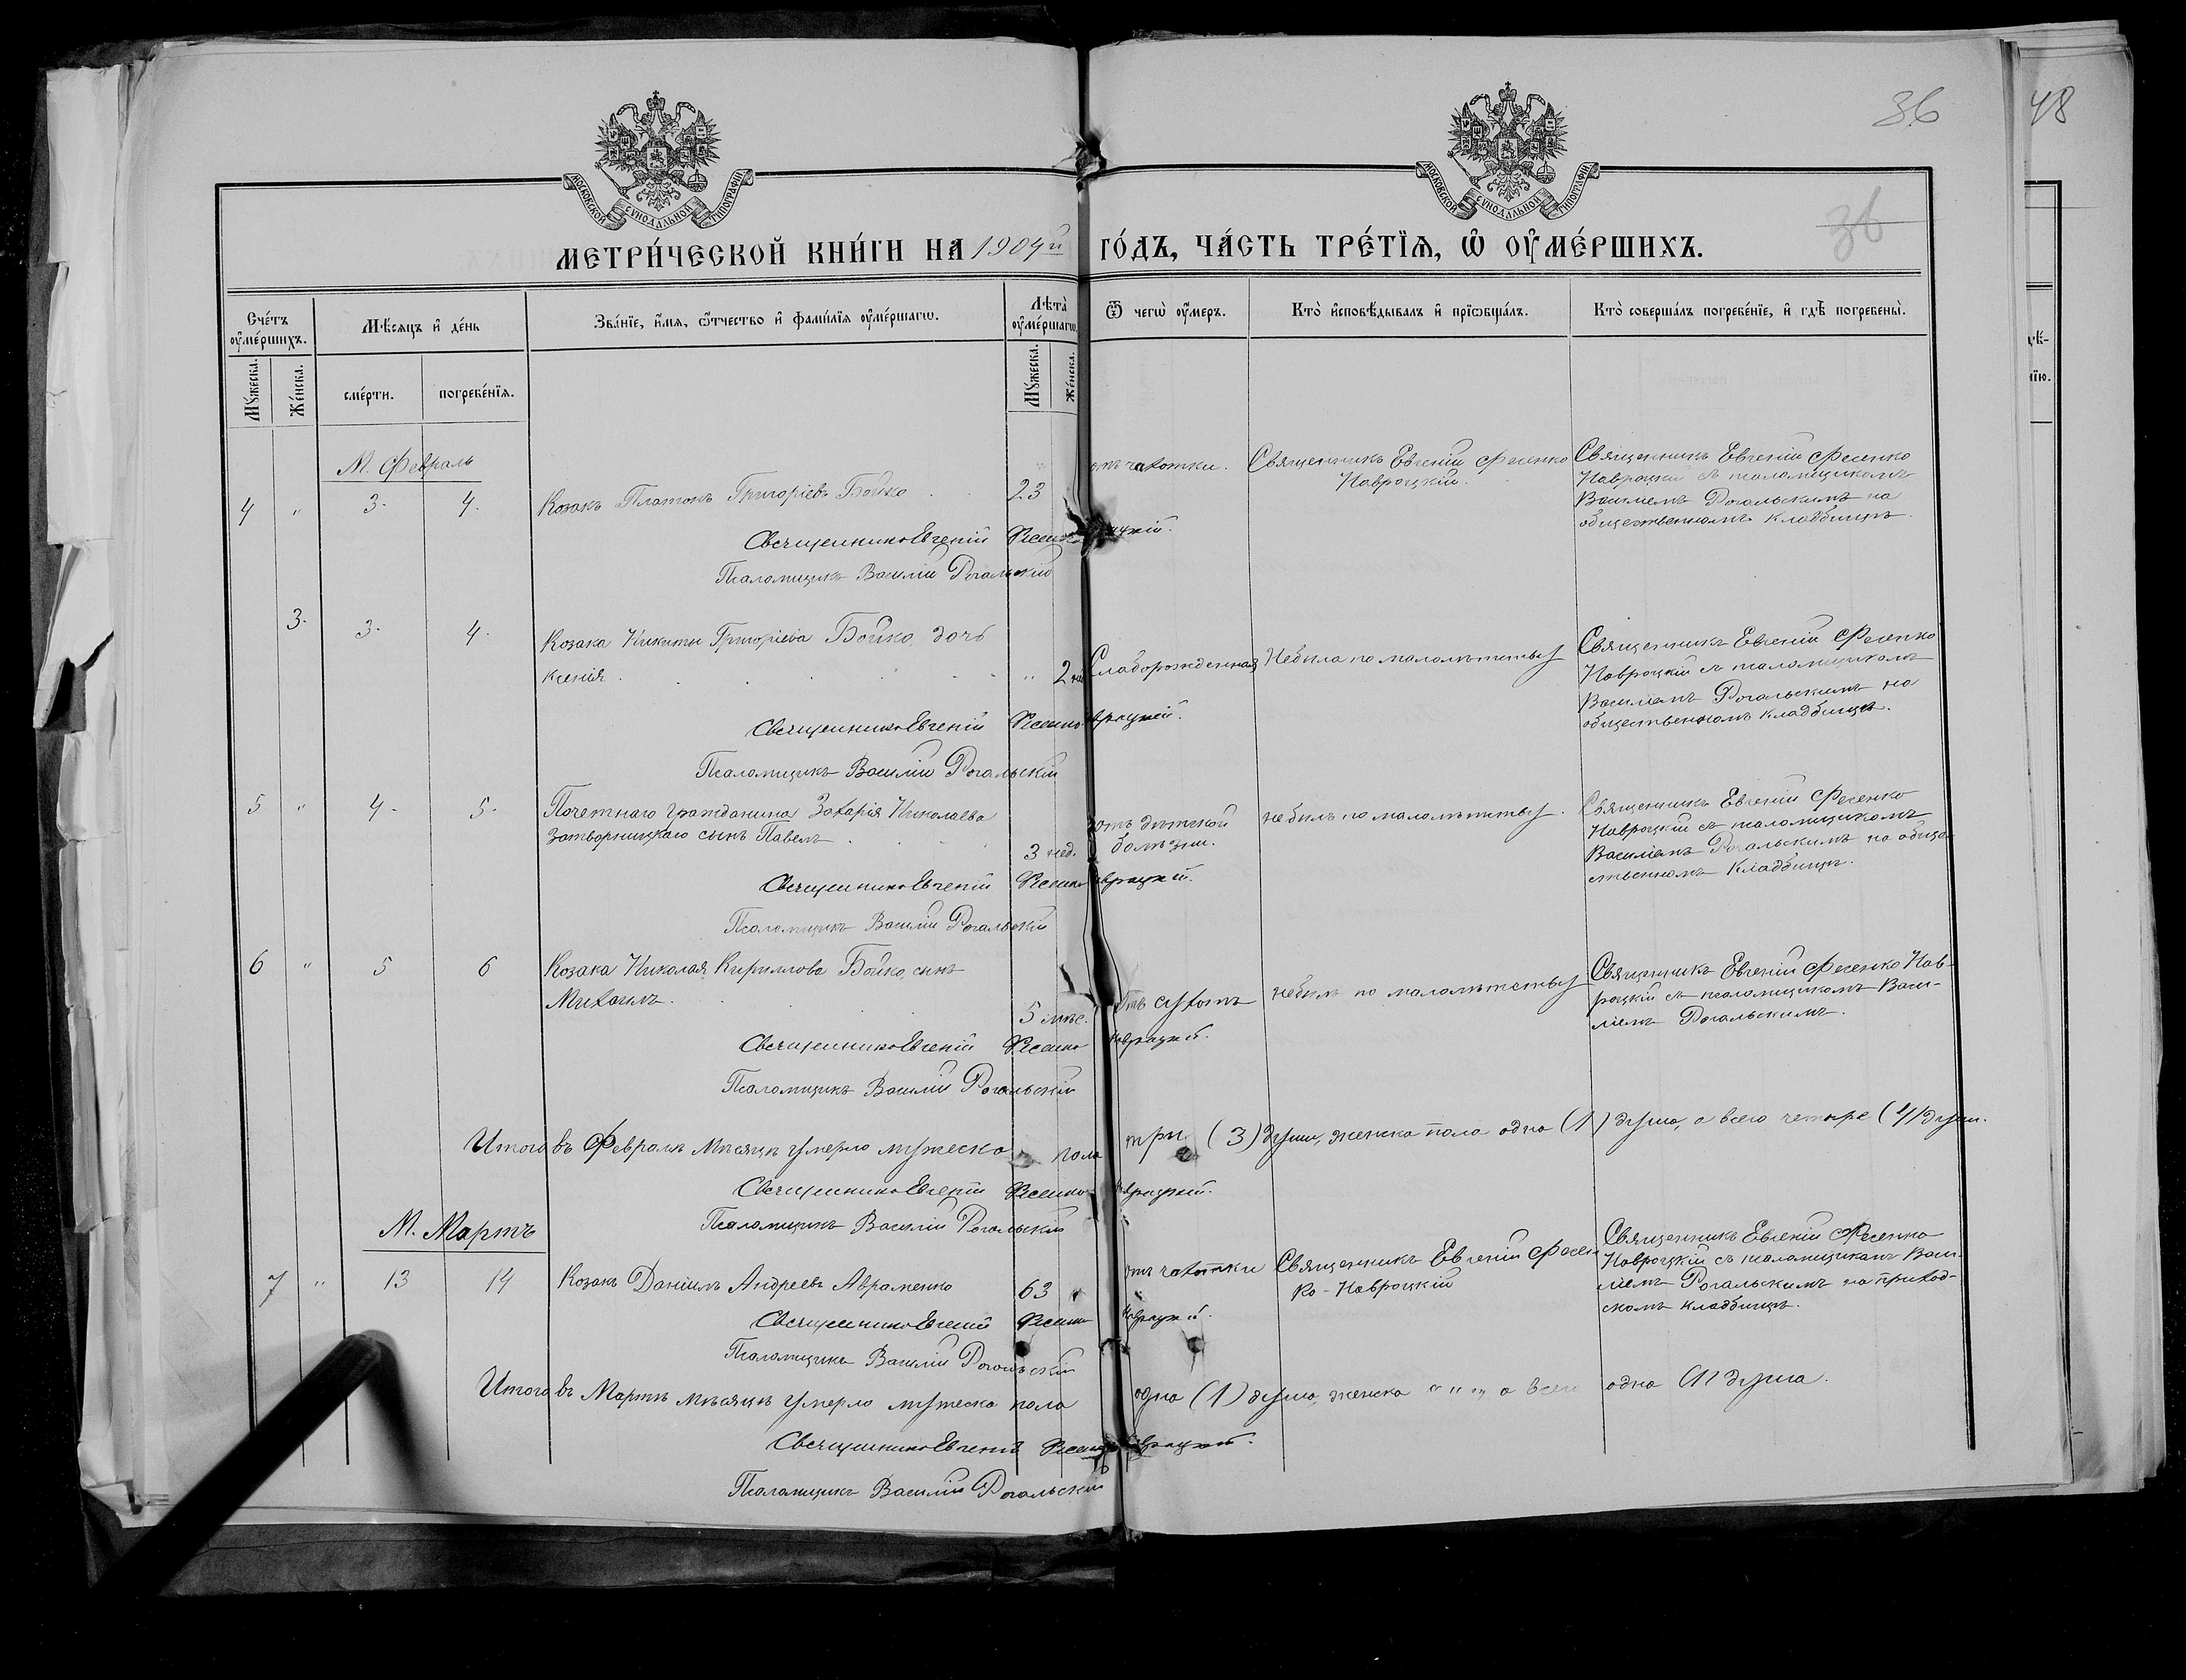 36
48
МОСКОВСКОЙ СѴНОДАЛЬНОЙ ТИПОГРАФІИ
МОСКОВСКОЙ СѴНОДАЛЬНОЙ ТИПОГРАФІИ
36
МЕТРИ́ЧЕСКОЙ КНИ́ГИ НА 1904й ГО́ДЪ, ЧА́СТЬ ТРЕ́ТЇѦ, Ѡ ОУ҆МЕ́РШИХЪ.
Сче́тъ оу҆ме́ршихъ.
Мѣ́сяцъ и҆ де́нь
Зва́нїе, и҆́мѧ, ѻ҆́тчество и҆ фами́лїѧ оу҆ме́ршагѡ.
Лѣ́та оу҆ме́ршагѡ.
Ѿ чегѡ̀ оу҆́меръ.
Кто̀ и҆сповѣ́дывалъ и҆ прїѡбща́лъ.
Кто̀ соверша́лъ погребе́нїе, и҆ гдѣ̀ погребены̀.
Мꙋ́жеска.
Же́нска.
сме́рти.
погребе́нїѧ.
Мꙋ́жеска.
Же́нска.
М. Февраль
4 " 3. 4. Козакъ Платонъ Григоріевъ Бойко 23 отъ чахотки. Священникъ Евгеній Фесенко
Навроцкій.
Священникъ Евгеній Фесенко
Навроцкій съ псаломщикомъ
Василіемъ Рогальскимъ на
общественномъ кладбищѣ.
Священникъ Евгеній Фесенко
Псаломщикъ Василій Рогальскій
3. 3. 4. Козака Никиты Григоріева Бойко, дочь
Ксенія. " 2 Слаборожденная Небыла по малолѣтству
Священникъ Евгеній Фесенко
Навроцкій съ псаломщикомъ
Василіемъ Рогальскимъ на
общественномъ кладбищѣ.
Священникъ Евгеній Фесенко Навроцкій.
Псаломщикъ Василій Рогальскій
5 " 4. 5. Почетнаго гражданина Захарія Николаева
Затворницкаго сынъ Павелъ 3 нед. отъ дѣтской
болѣзни. небылъ по малолѣтству.
Священникъ Евгеній Фесенко
Навроцкій съ псаломщикомъ
Василіемъ Рогальскимъ на обще-
ственномъ кладбищѣ.
Священникъ Евгеній Фесенко Навроцкій.
Псаломщикъ Василій Рогальскій
6 " 5 6 Козака Николая Кириллова Бойко, сынъ
Михаилъ. 5 мѣс. отъ сухотъ небылъ по малолѣтству
Священникъ Евгеній Фесенко Нав-
роцкій съ псаломщикомъ Васи-
ліемъ Рогальскимъ.
Священникъ Евгеній Фесенко Навроцкій.
Псаломщикъ Василій Рогальскій
Итого въ Февралѣ мѣсяцѣ умерло мужеска пола три (3) души, женска пола одна (1) душа, а всего четыре (4) души.
Священникъ Евгеній Фесенко Навроцкій.
Псаломщикъ Василій Рогальскій
М. Мартъ
7 " 13 14 Козакъ Даніилъ Андреевъ Авраменко 63 " отъ чахотки Священникъ Евгеній Фесен
ко-Навроцкій
Священникъ Евгеній Фесенко
Навроцкій съ псаломщикомъ Васи-
ліемъ Рогальскимъ на приход-
скомъ кладбищѣ.
Священникъ Евгеній Фесенко Навроцкій.
Псаломщикъ Василій Рогальскій
Итого въ Мартѣ мѣсяцѣ умерло мужеска пола одна (1) душа, женска " " " а всего одна (1) душа.
Священникъ Евгеній Фесенко Навроцкій.
Псаломщикъ Василій Рогальскій